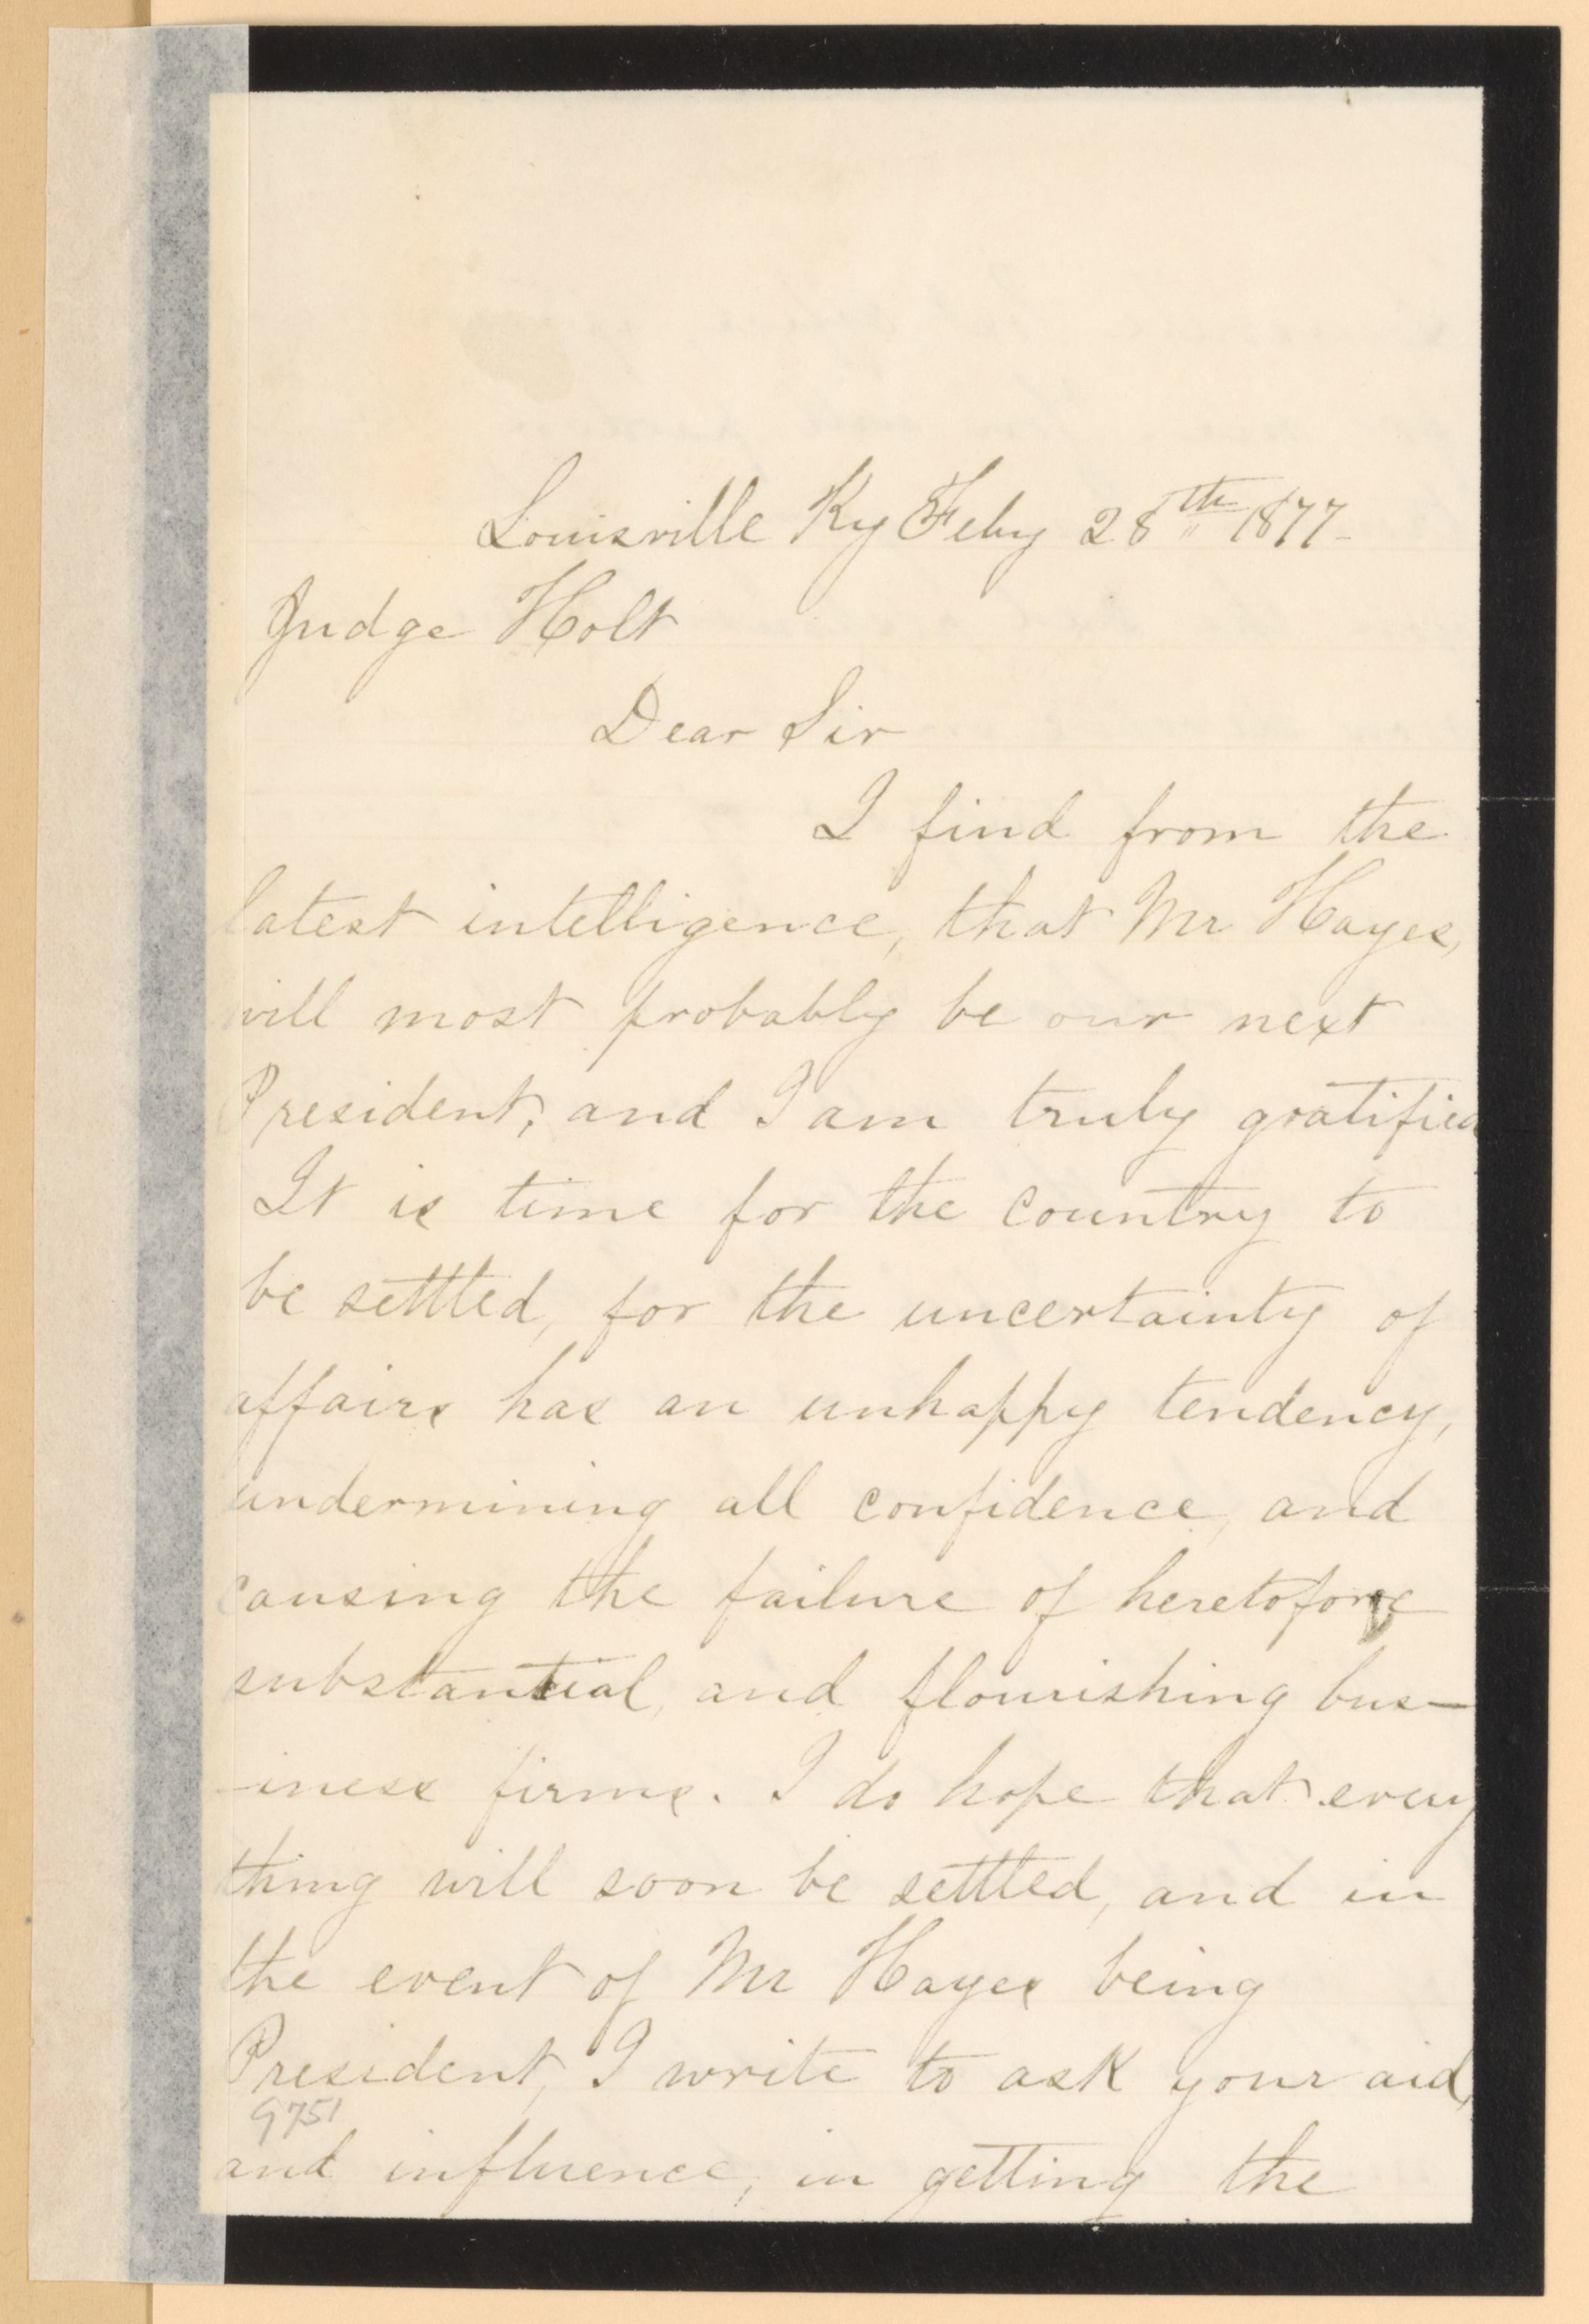 Louisville Ky Feby 28th 1877-
Judge Holt
Dear Sir
I find from the
latest intelligence, that Mr Hayes,
will most probably be our next
President, and I am truly gratified
It is time for the country to
be settled, for the uncertainty of
affairs has an unhappy tendency,
undermining all confidence, and
causing the failure of heretofore
substantial, and flourishing bus-
-iness firms. I do hope that every
thing will soon be settled, and in
the event of Mr Hayes being
President, I write to ask your aid,
9751
and influence, in getting the